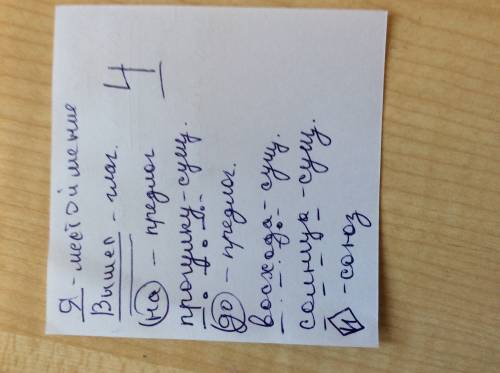 Я - местоимение
Вышел - глаг.
на - предлог
прогулку - сущ.
до - предлог.
восхода - сущ.
солнца - сущ.
И - союз
4